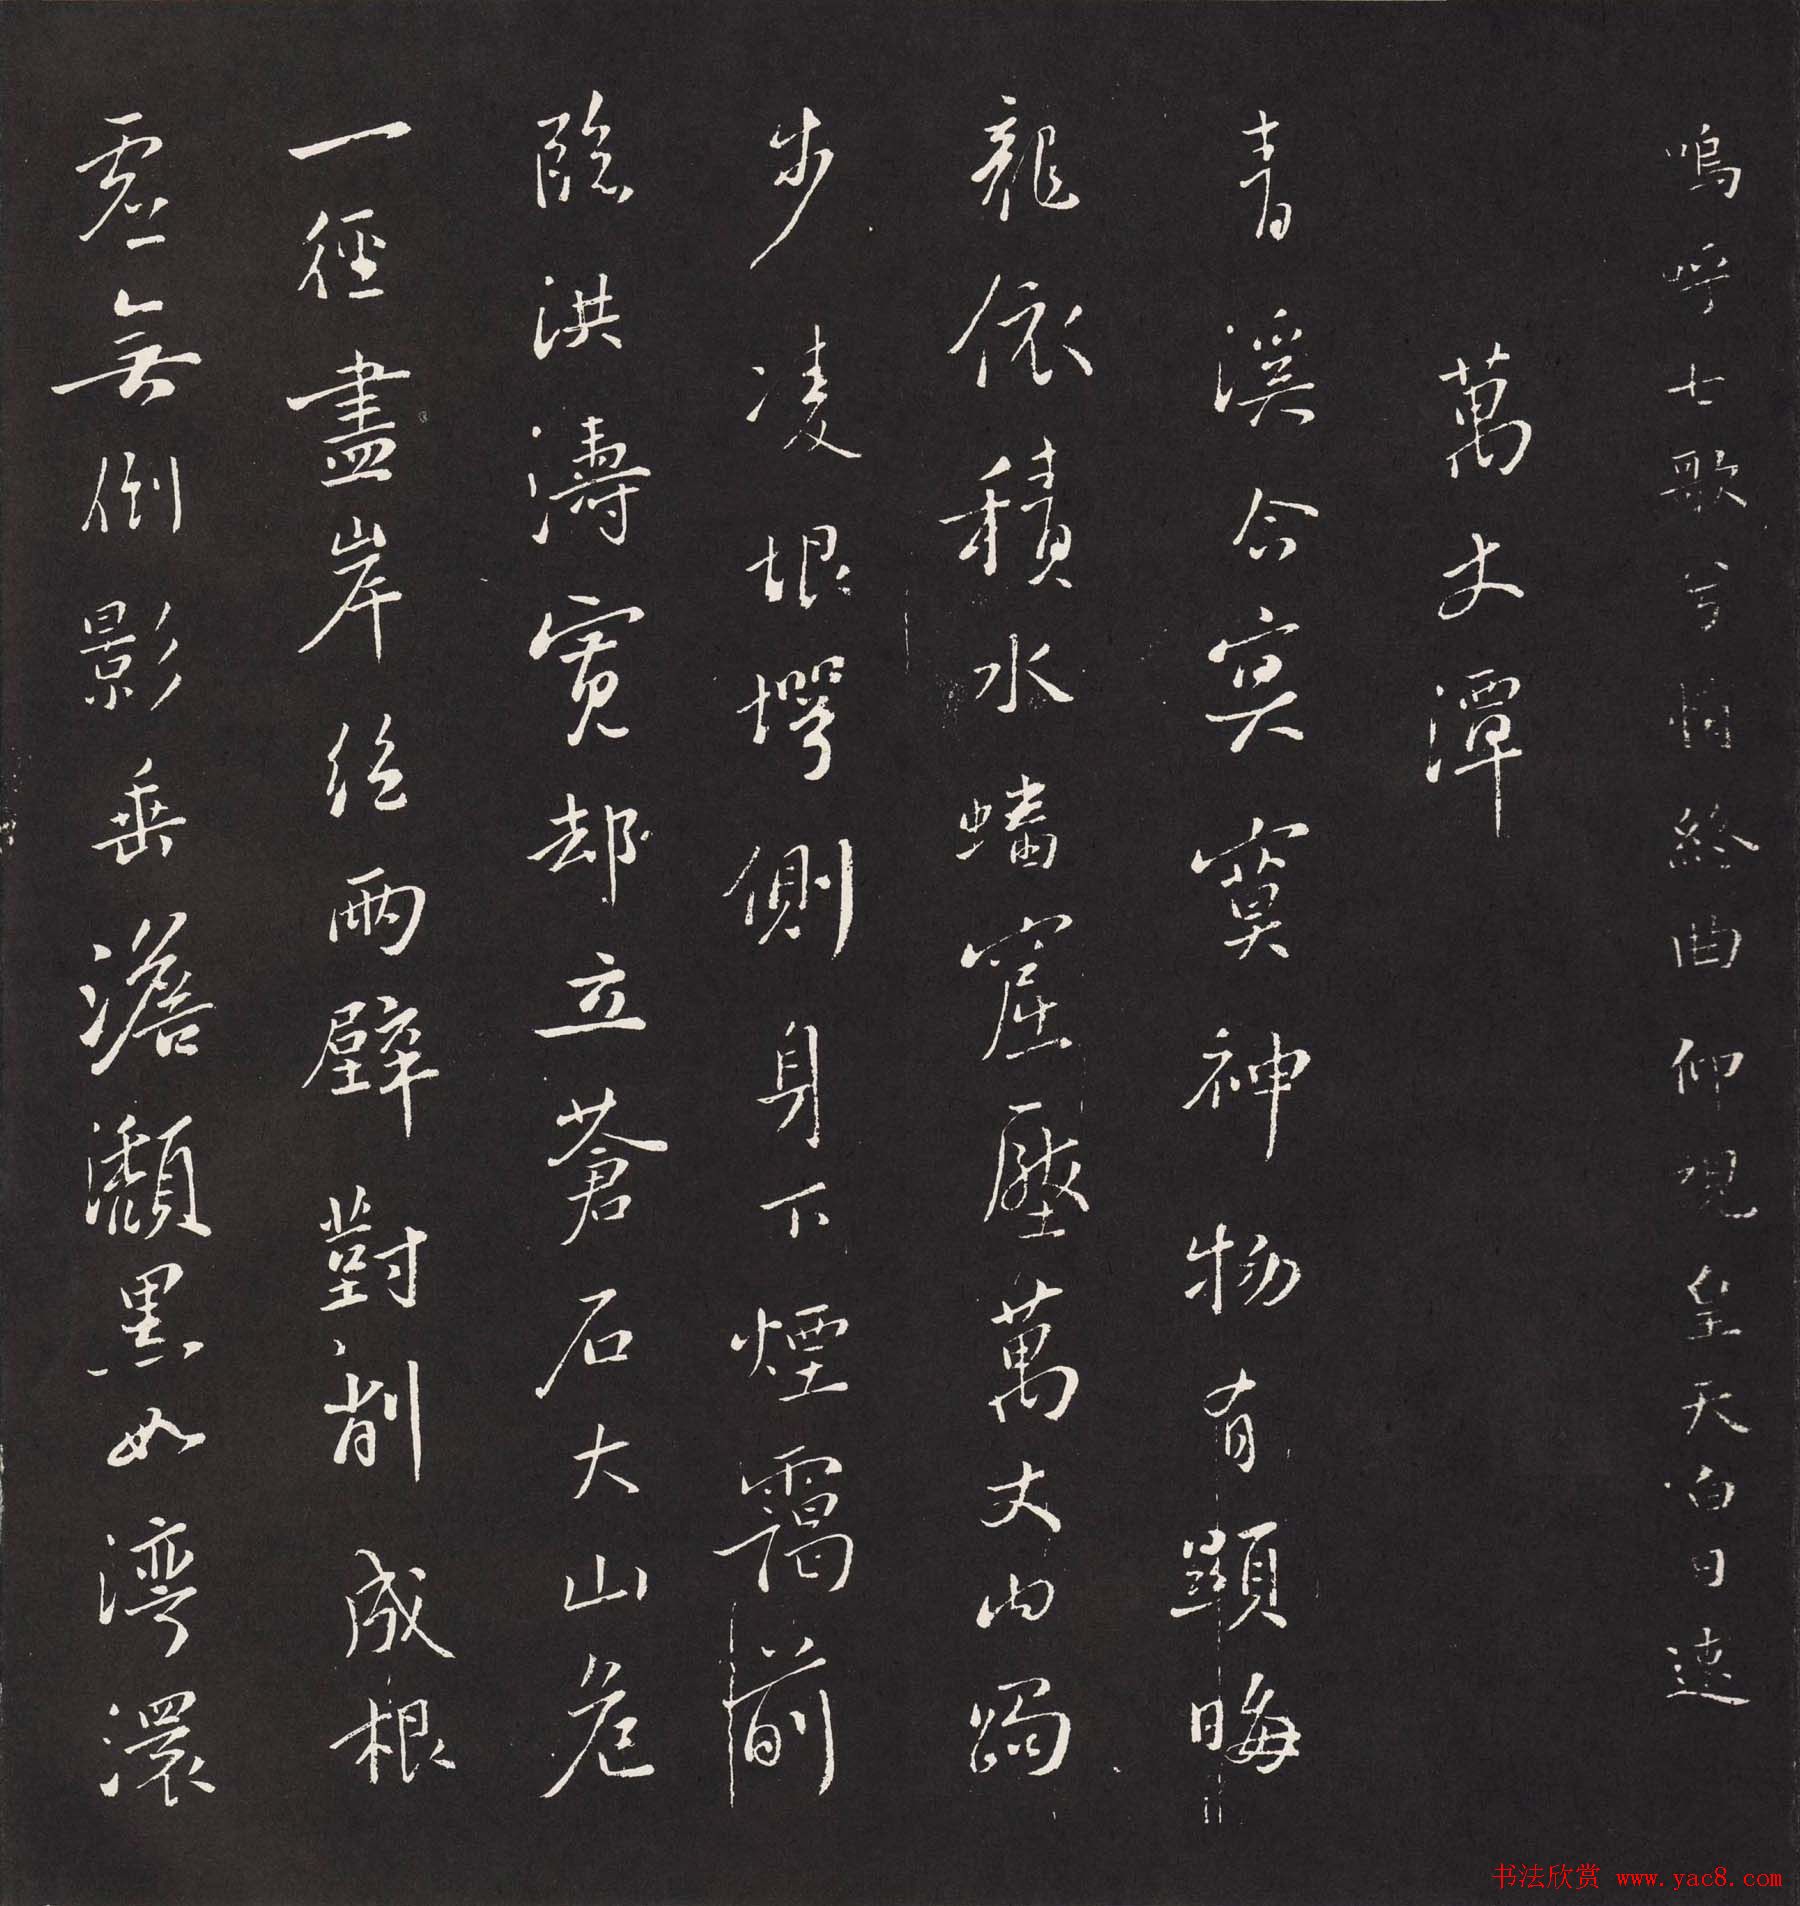 嗚呼七歌兮悄終曲仰視皇天白日速
萬丈潭
青溪合冥寞神物有顯晦
龍依積水蟠窟壓萬丈內跼
步凌垠堮側身下煙靄前
臨洪濤寬却立蒼石大山危
一徑盡岸絕兩壁對削成根
虛無倒影垂澹瀬黑如灣澴
书法欣赏 www.yac8.com